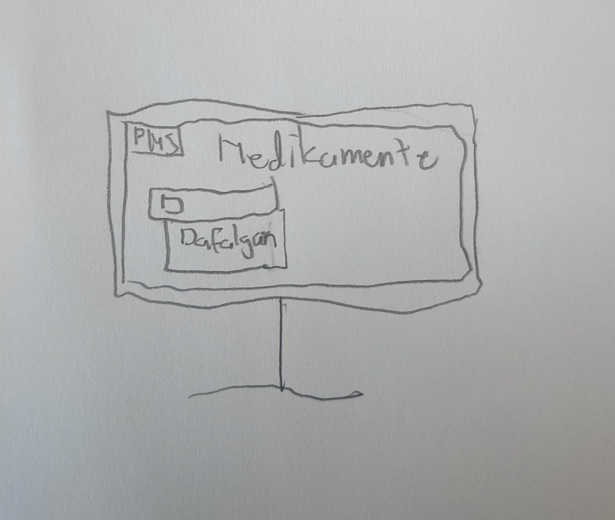 PMS
Medikamente
D
Dafalgan